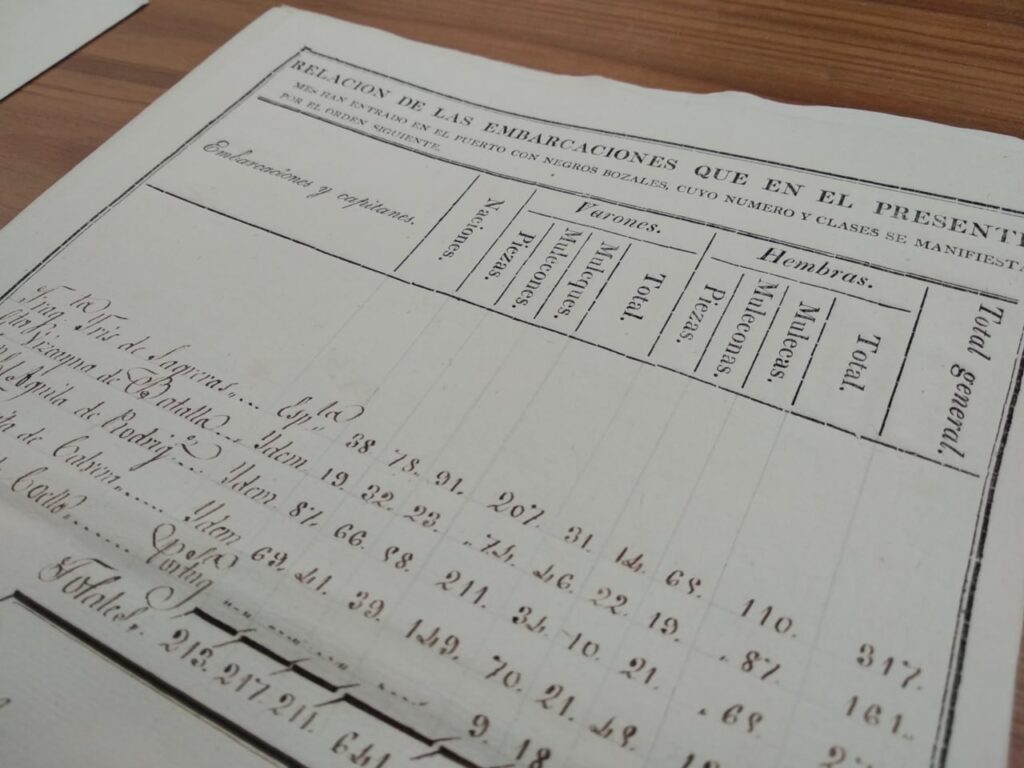 RELACION DE LAS EMBARCACIONES QUE EN EL PRESENTE
MES HAN ENTRADO EN EL PUERTO CON NEGROS BOZALES, CUYO NUMERO Y CLASES SE MANIFIESTA
POR EL ORDEN SIGUIENTE.
Embarcaciones y capitanes.
Naciones.
Varones.
Piezas.
Mulecones.
Muleques.
Total.
Hembras.
Piezas.
Muleconas
Mulecas.
Total.
Total general.
de Sagarras... Espla 38. 78. 91. 207. 31. 14. 65. 110. 317.
de Batalla Ydem 19. 32. 23. 74. 46. 22. 19. 87. 161.
Aguila de Rodrigz Ydem 87. 66. 58. 211. 34. 10. 21. 65.
de Cabrera Ydem 69. 41. 39. 149. 70. 21. 48.
9. 18.
Totales. 213. 217. 211. 641